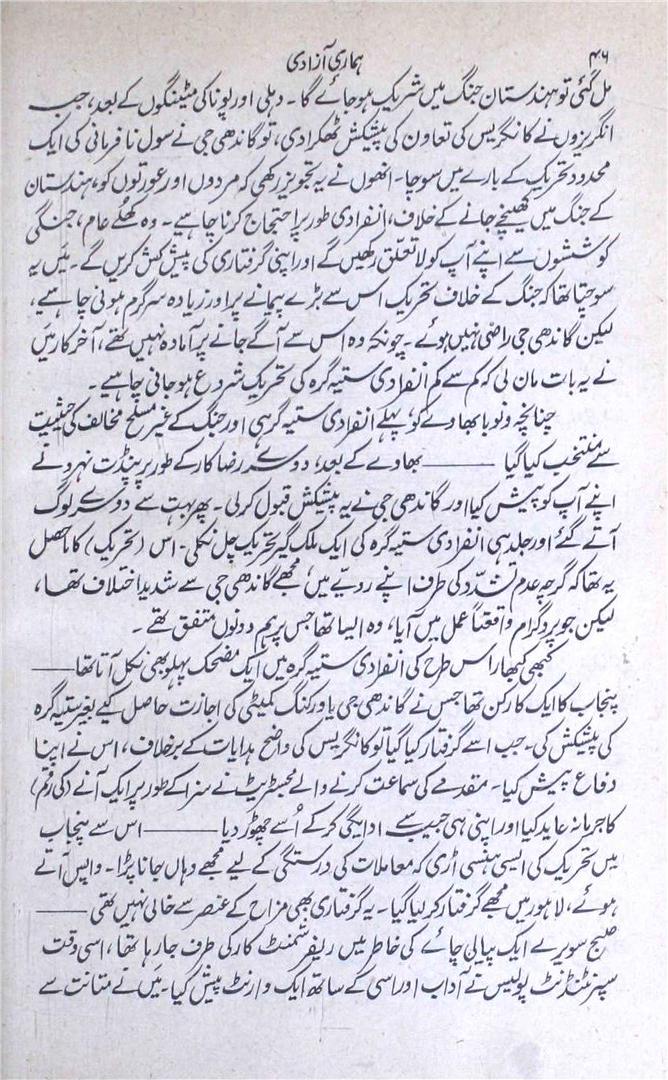 ۴۶
ہماری آزادی
مل گئی تو ہندستان جنگ میں شریک ہو جائے گا۔ دہلی اور پونا کی میٹنگوں کے بعد، جب
انگریزوں نے کانگریس کی تعاون کی پیشکش ٹھکرا دی، تو گاندھی جی نے سول نافرمانی کی ایک
محدود تحریک کے بارے میں سوچا۔ انھوں نے یہ تجویز رکھی کہ مردوں اور عورتوں کو، ہندستان
کے جنگ میں کھینچے جانے کے خلاف، انفرادی طور پر احتجاج کرنا چاہیے۔ وہ کھلے عام، جنگی
کوششوں سے اپنے آپ کو لاتعلّق رکھیں گے اور اپنی گرفتاری کی پیش کش کریں گے۔ میَں یہ
سوچتا تھا کہ جنگ کے خلاف تحریک اس سے بڑے پیمانے پر اور زیادہ سرگرم ہونی چاہیے،
لیکن گاندھی جی راضی نہیں ہوئے۔ چونکہ وہ اس سے آگے جانے پر آمادہ نہیں تھے، آخرکار میَں
نے یہ بات مان لی کہ کم سے کم انفرادی ستیہ گرہ کی تحریک شروع ہو جانی چاہیے۔
چنانچہ ونوبا بھاوے کو، پہلے انفرادی ستیہ گرہی اور جنگ کے غیر مسلح مخالف کی حیثیت
سے منتخب کیا گیا ——— بھاوے کے بعد، دوسرے رضاکار کے طور پر پنڈت نہرو نے
اپنے آپ کو پیش کیا اور گاندھی جی نے یہ پیشکش قبول کرلی۔ پھر بہت سے دوسرے لوگ
آتے گئے اور جلد ہی انفرادی ستیہ گرہ کی ایک ملک گیر تحریک چل نکلی۔ اس (تحریک) کا ماحصل
یہ تھا کہ گرچہ عدم تشدّد کی طرف اپنے رویّے میں، مجھے گاندھی جی سے شدید اختلاف تھا،
لیکن جو پروگرام واقعتاً عمل میں آیا، وہ ایسا تھا جس پر ہم دونوں متفق تھے۔
کبھی کبھار اس طرح کی انفرادی ستیہ گرہ میں ایک مضحک پہلو بھی نکل آتا تھا ——
پنجاب کا ایک کارکن تھا جس نے گاندھی جی یا ورکنگ کمیٹی کی اجازت حاصل کیے بغیر ستیہ گرہ
کی پیشکش کی۔ جب اسے گرفتار کیا گیا تو کانگریس کی واضح ہدایات کے برخلاف، اس نے اپنا
دفاع پیش کیا۔ مقدمے کی سماعت کرنے والے مجسٹریٹ نے سزا کے طور پر ایک آنے (کی رقم)
کا جرمانہ عاید کیا اور اپنی ہی جیب سے ادایگی کرکے اُسے چھوڑ دیا ——— اس سے پنجاب
میں تحریک کی ایسی ہنسی اڑی کہ معاملات کی درستگی کے لیے مجھے وہاں جانا پڑا۔ واپس آتے
ہوئے، لاہور میں مجھے گرفتار کر لیا گیا۔ یہ گرفتاری بھی مزاح کے عنصر سے خالی نہیں تھی ——
صبح سویرے ایک پیالی چائے کی خاطر میں ریفرشمنٹ کار کی طرف جا رہا تھا، اسی وقت
سپرنٹنڈنٹ پولیس نے آداب اور اسی کے ساتھ ایک وارنٹ پیش کیا۔ میَں نے متانت سے